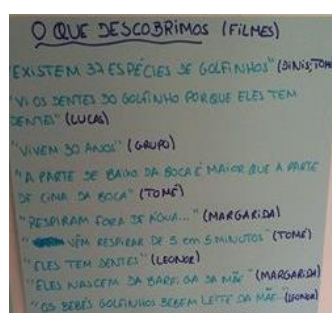 O QUE DESCOBRIMOS (FILMES)
"EXISTEM 37 ESPÉCIES DE GOLFINHOS" (DINIS, TOMÉ
"VI OS DENTES DO GOLFINHO PORQUE ELES TEM
DENTES" (LUCAS)
"VIVEM 30 ANOS" (GRUPO)
"A PARTE DE BAIXO DA BOCA É MAIOR QUE A PARTE
DE CIMA DA BOCA" (TOMÉ)
"RESPIRAM FORA DE ÁGUA..." (MARGARIDA)
" VÊM RESPIRAR DE 5 em 5 MINUTOS" (TOMÉ)
"ELES TEM DENTES" (LEONOR)
"ELES NASCEM DA BARRIGA DA MÃE" (MARGARIDA)
"OS BEBÉS GOLFINHOS BEBEM LEITE DA MÃE" (LEONOR)